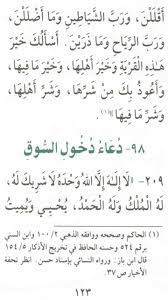 أَقْلَلْنَ، وَرَبَّ الشَّيَاطِينِ وَمَا أَضْلَلْنَ،
وَرَبَّ الرِّيَاحِ وَمَا ذَرَيْنَ. أَسْأَلُكَ خَيْرَ
هَذِهِ الْقَرْيَةِ وَخَيْرَ أَهْلِهَا، وَخَيْرَ مَا فِيهَا،
وَأَعُوذُ بِكَ مِنْ شَرِّهَا، وَشَرِّ أَهْلِهَا،
وَشَرِّ مَا فِيهَا))(١)
٩٨- دُعَاءُ دُخُولِ السُّوقِ
٢٠٩- ((لَا إِلَهَ إِلَّا اللَّهُ وَحْدَهُ لَا شَرِيكَ لَهُ،
لَهُ الْمُلْكُ وَلَهُ الْحَمْدُ، يُحْيِي وَيُمِيتُ
(١) الحاكم وصححه ووافقه الذهبي ٢/ ١٠٠ وابن السني
برقم ٥٢٤ وحسنه الحافظ في تخريج الأذكار ٥/ ١٥٤
قال ابن باز: ورواه النسائي بإسناد حسن. انظر تحفة
الأخيار ص ٣٧.
١٢٣